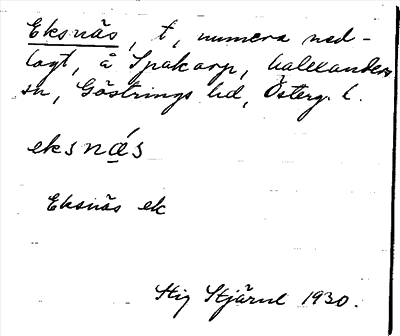 Eksnäs, t, numera ned-
lagt, å Spakarp, Kallexanders
sn, Göstrings hd, Österg. l.
eksnä́s
Eksnäs ek
Stig Stjärne 1930.